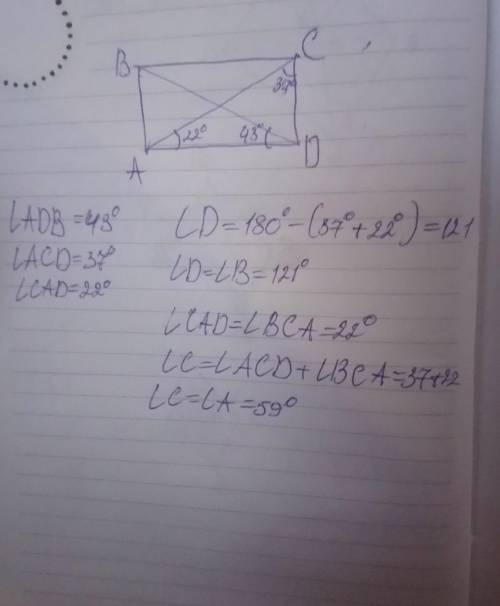 B
C
37°
22°
43°
A
D
∠ADB=43°
∠ACD=37°
∠CAD=22°
∠D=180°-(37°+22°)=121
∠D=∠B=121°
∠CAD=∠BCA=22°
∠C=∠ACD+∠BCA=37+22
∠C=∠A=59°